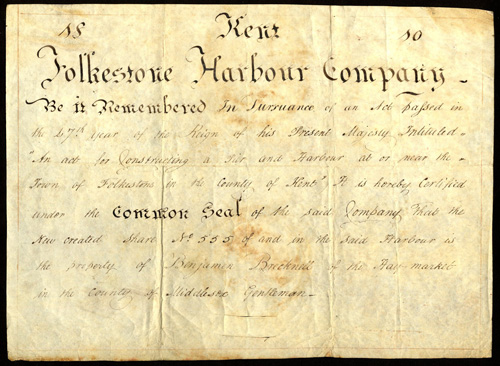 18 Kent 10
Folkestone Harbour Company
Be it Remembered In Pursuance of an Act passed in
the 47th year of the Reign of his Present Majesty Intituled
"An act for Constructing a Pier and Harbour at or near the
Town of Folkestone in the County of Kent" It is hereby Certified
under the Common Seal of the said Company That the
New created Share No. 555 of and in the said Harbour is
the property of Benjamin Brecknell of the Hay-market
in the County of Middlesex Gentleman